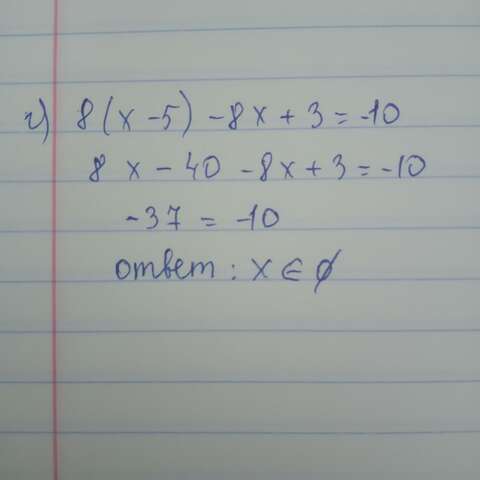 г) 8(x-5) -8x+3=-10
8x-40-8x+3=-10
-37=-10
ответ: x∈∅